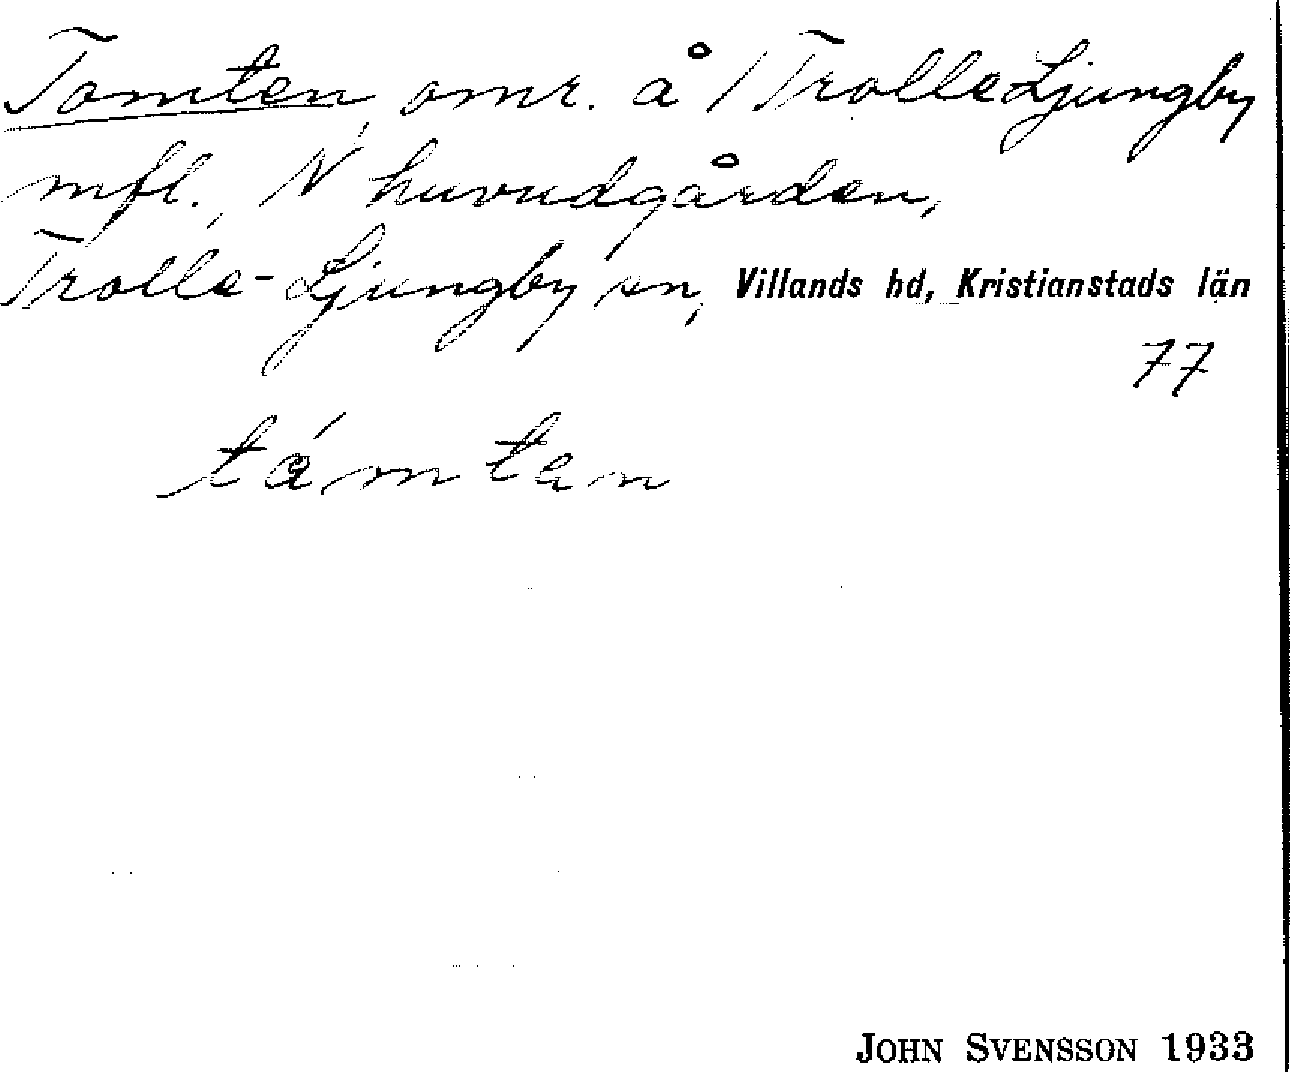 Tomten, omr. å 1 TrolleLjungby
mfl., N huvudgården,
Trolle-Ljungby sn, Villands hd, Kristianstads län
77
támten
JOHN SVENSSON 1933